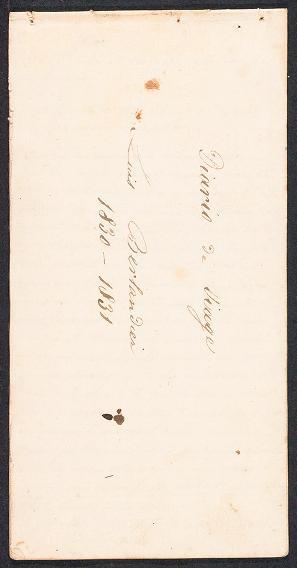 Diario de Viage
Luis Berlandier
1830 - 1831